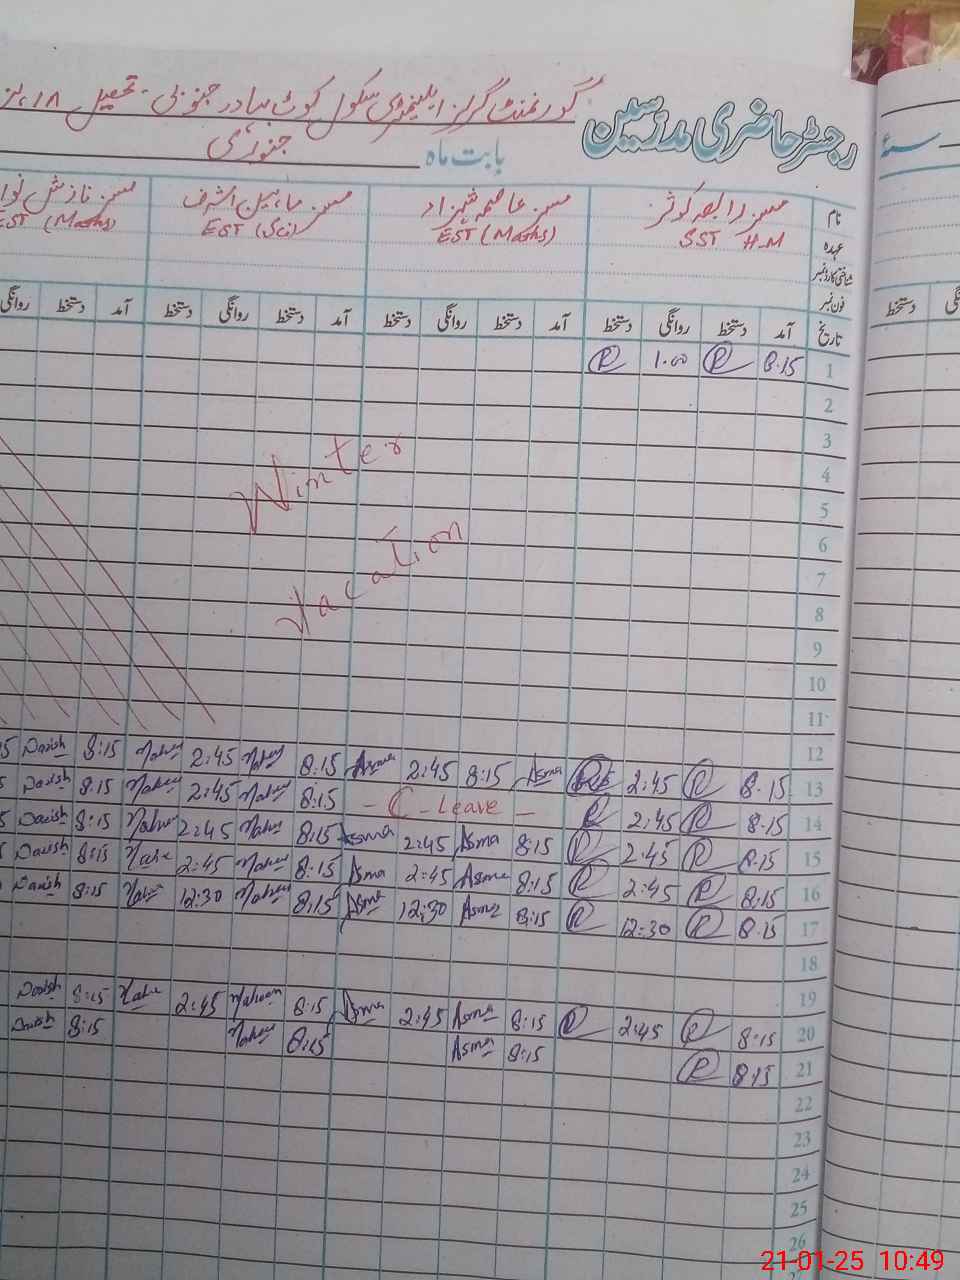 رجسٹر حاضری مدرسین گورنمنٹ گرلز ایلیمنٹری سکول کوٹ بہادر جنوبی - تحصیل ۱۸
بابت ماہ جنوری
سنہ
نام مسز رابعہ کوثر مسز عاصمہ شہزاد مسز ماہین اشرف مسز نازش
عہدہ SST H.M EST (Maths) EST (Sci) EST (Maths)
شناختی کارڈ نمبر
فون نمبر
تاریخ آمد دستخط روانگی دستخط آمد دستخط روانگی دستخط آمد دستخط روانگی دستخط آمد دستخط روانگی
دستخط
1 8.15 R 1.00 R
2
3
4
Winter
5
6
7
Vacation
8
9
10
11
12
13 8.15 R 2:45 Asma 8:15 2:45 Asma 8:15 2:45 8:15 Danish
14 8.15 R 2:45 R - C - Leave - 8:15 2:45 8:15 Danish
15 8.15 R 2:45 R 8:15 Asma 2:45 Asma 8:15 2:45 8:15 Danish
16 8.15 R 2:45 R 8:15 Asma 2:45 Asma 8:15 2:45 8:15 Danish
17 8.15 R 12:30 R 8:15 Asma 12:30 Asma 8:15 12:30 8:15 Danish
18
19
20 8:15 R 2:45 R 8:15 Asma 2:45 Asma 8:15 2:45 8:15 Danish
21 8:15 R 8:15 Asma 8:15 8:15 Danish
22
23
24
25
26
21-01-25 10:49